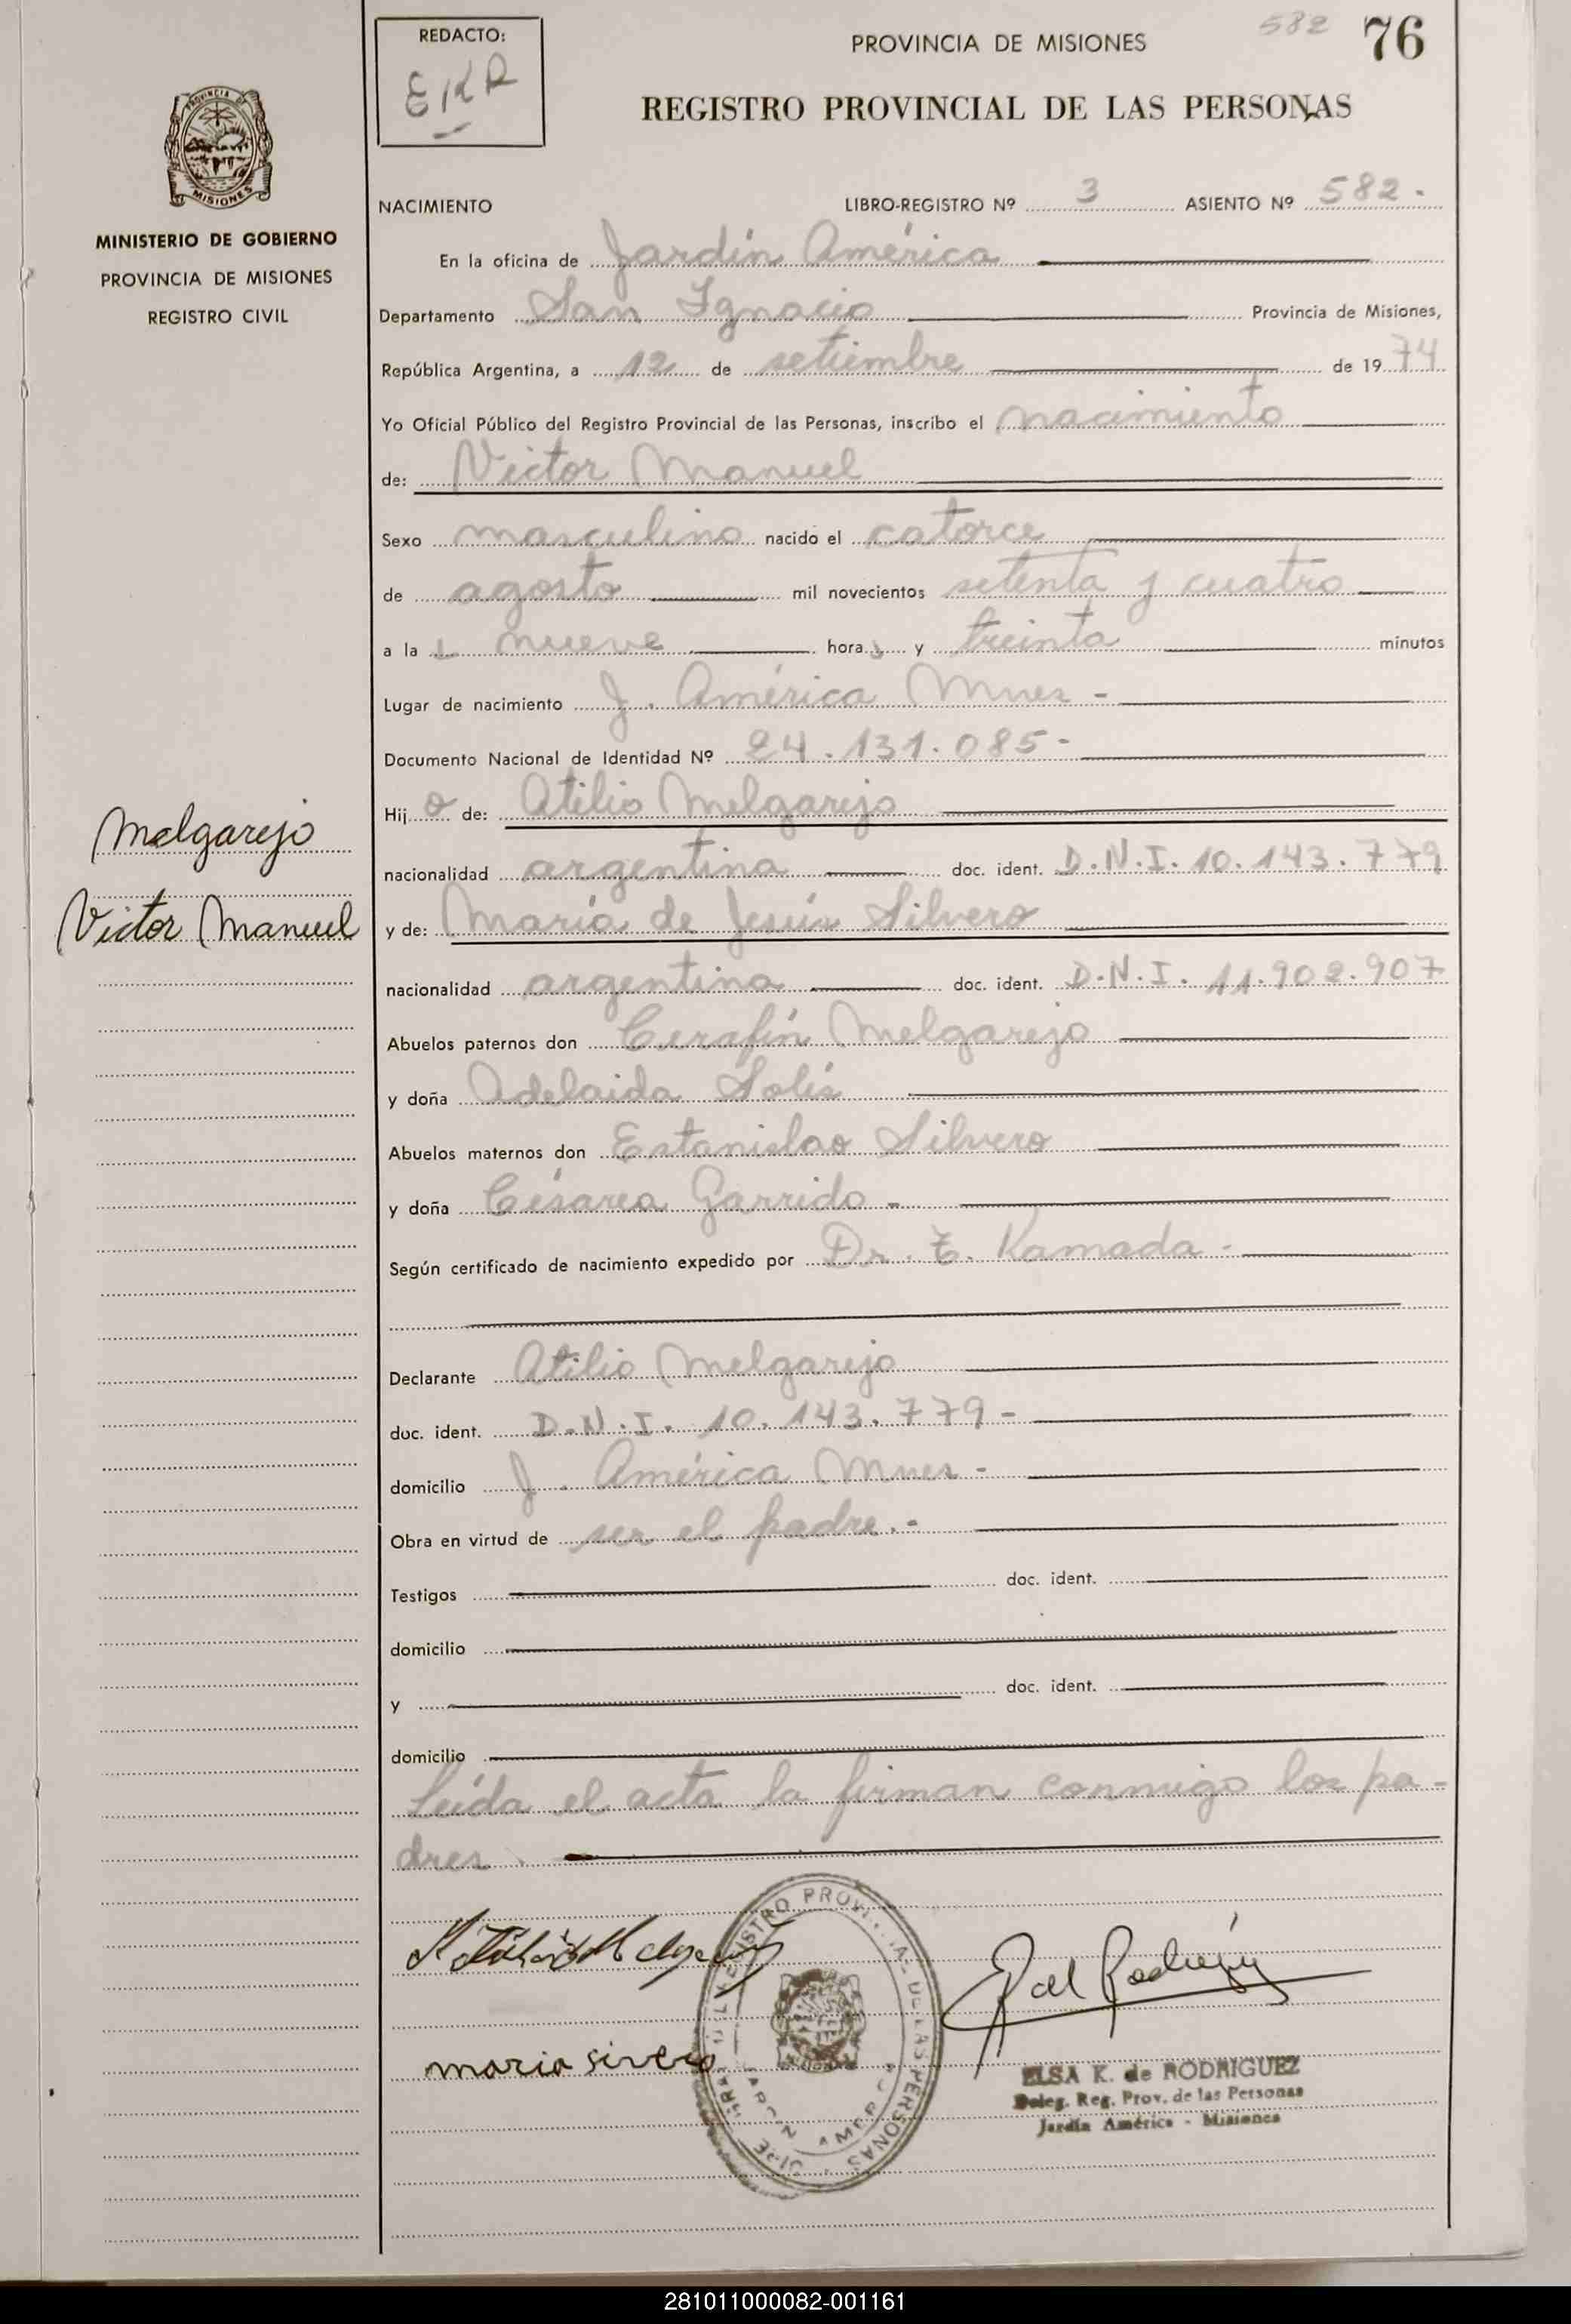 REDACTO:
EKR
PROVINCIA DE MISIONES
582 76
REGISTRO PROVINCIAL DE LAS PERSONAS
PROVINCIA DE
MISIONES
MINISTERIO DE GOBIERNO
PROVINCIA DE MISIONES
REGISTRO CIVIL
NACIMIENTO LIBRO-REGISTRO Nº 3 ASIENTO Nº 582.
En la oficina de Jardín América
Departamento San Ignacio Provincia de Misiones,
República Argentina, a 12 de setiembre de 1974
Yo Oficial Público del Registro Provincial de las Personas, inscribo el nacimiento
de: Victor Manuel
Sexo masculino nacido el catorce
de agosto mil novecientos setenta y cuatro
a las nueve horas y treinta minutos
Lugar de nacimiento J. América Mnes -
Documento Nacional de Identidad Nº 24.131.085-
Hijo de: Atilio Melgarejo
Melgarejo
nacionalidad argentina doc. ident. D.N.I. 10.143.779
Victor Manuel
y de: María de Jesús Silvero
nacionalidad argentina doc. ident. D.N.I. 11.902.907
Abuelos paternos don Cerafín Melgarejo
y doña Adelaida Solís
Abuelos maternos don Estanislao Silvero
y doña Césarea Garrido -
Según certificado de nacimiento expedido por Dr. T. Kamada -
Declarante Atilio Melgarejo
doc. ident. D.N.I. 10.143.779-
domicilio J. América Mnes -
Obra en virtud de ser el padre.-
Testigos doc. ident.
domicilio
y doc. ident.
domicilio
Leída el acta la firman conmigo los pa-
dres.
maria sirvero
ELSA K. de RODRIGUEZ
Deleg. Reg. Prov. de las Personas
Jardín América - Misiones
281011000082-001161